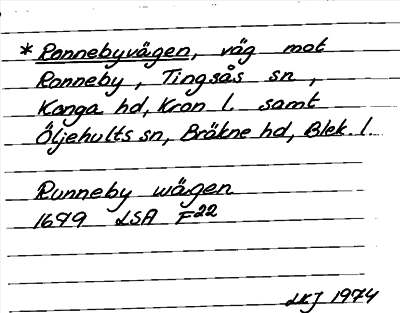 * Ronnebyvägen, väg mot
Ronneby, Tingsås sn,
Konga hd, Kron l. samt
Öljehults sn, Bräkne hd, Blek. l.
Runneby wägen
1699 LSA F22
LKJ 1974